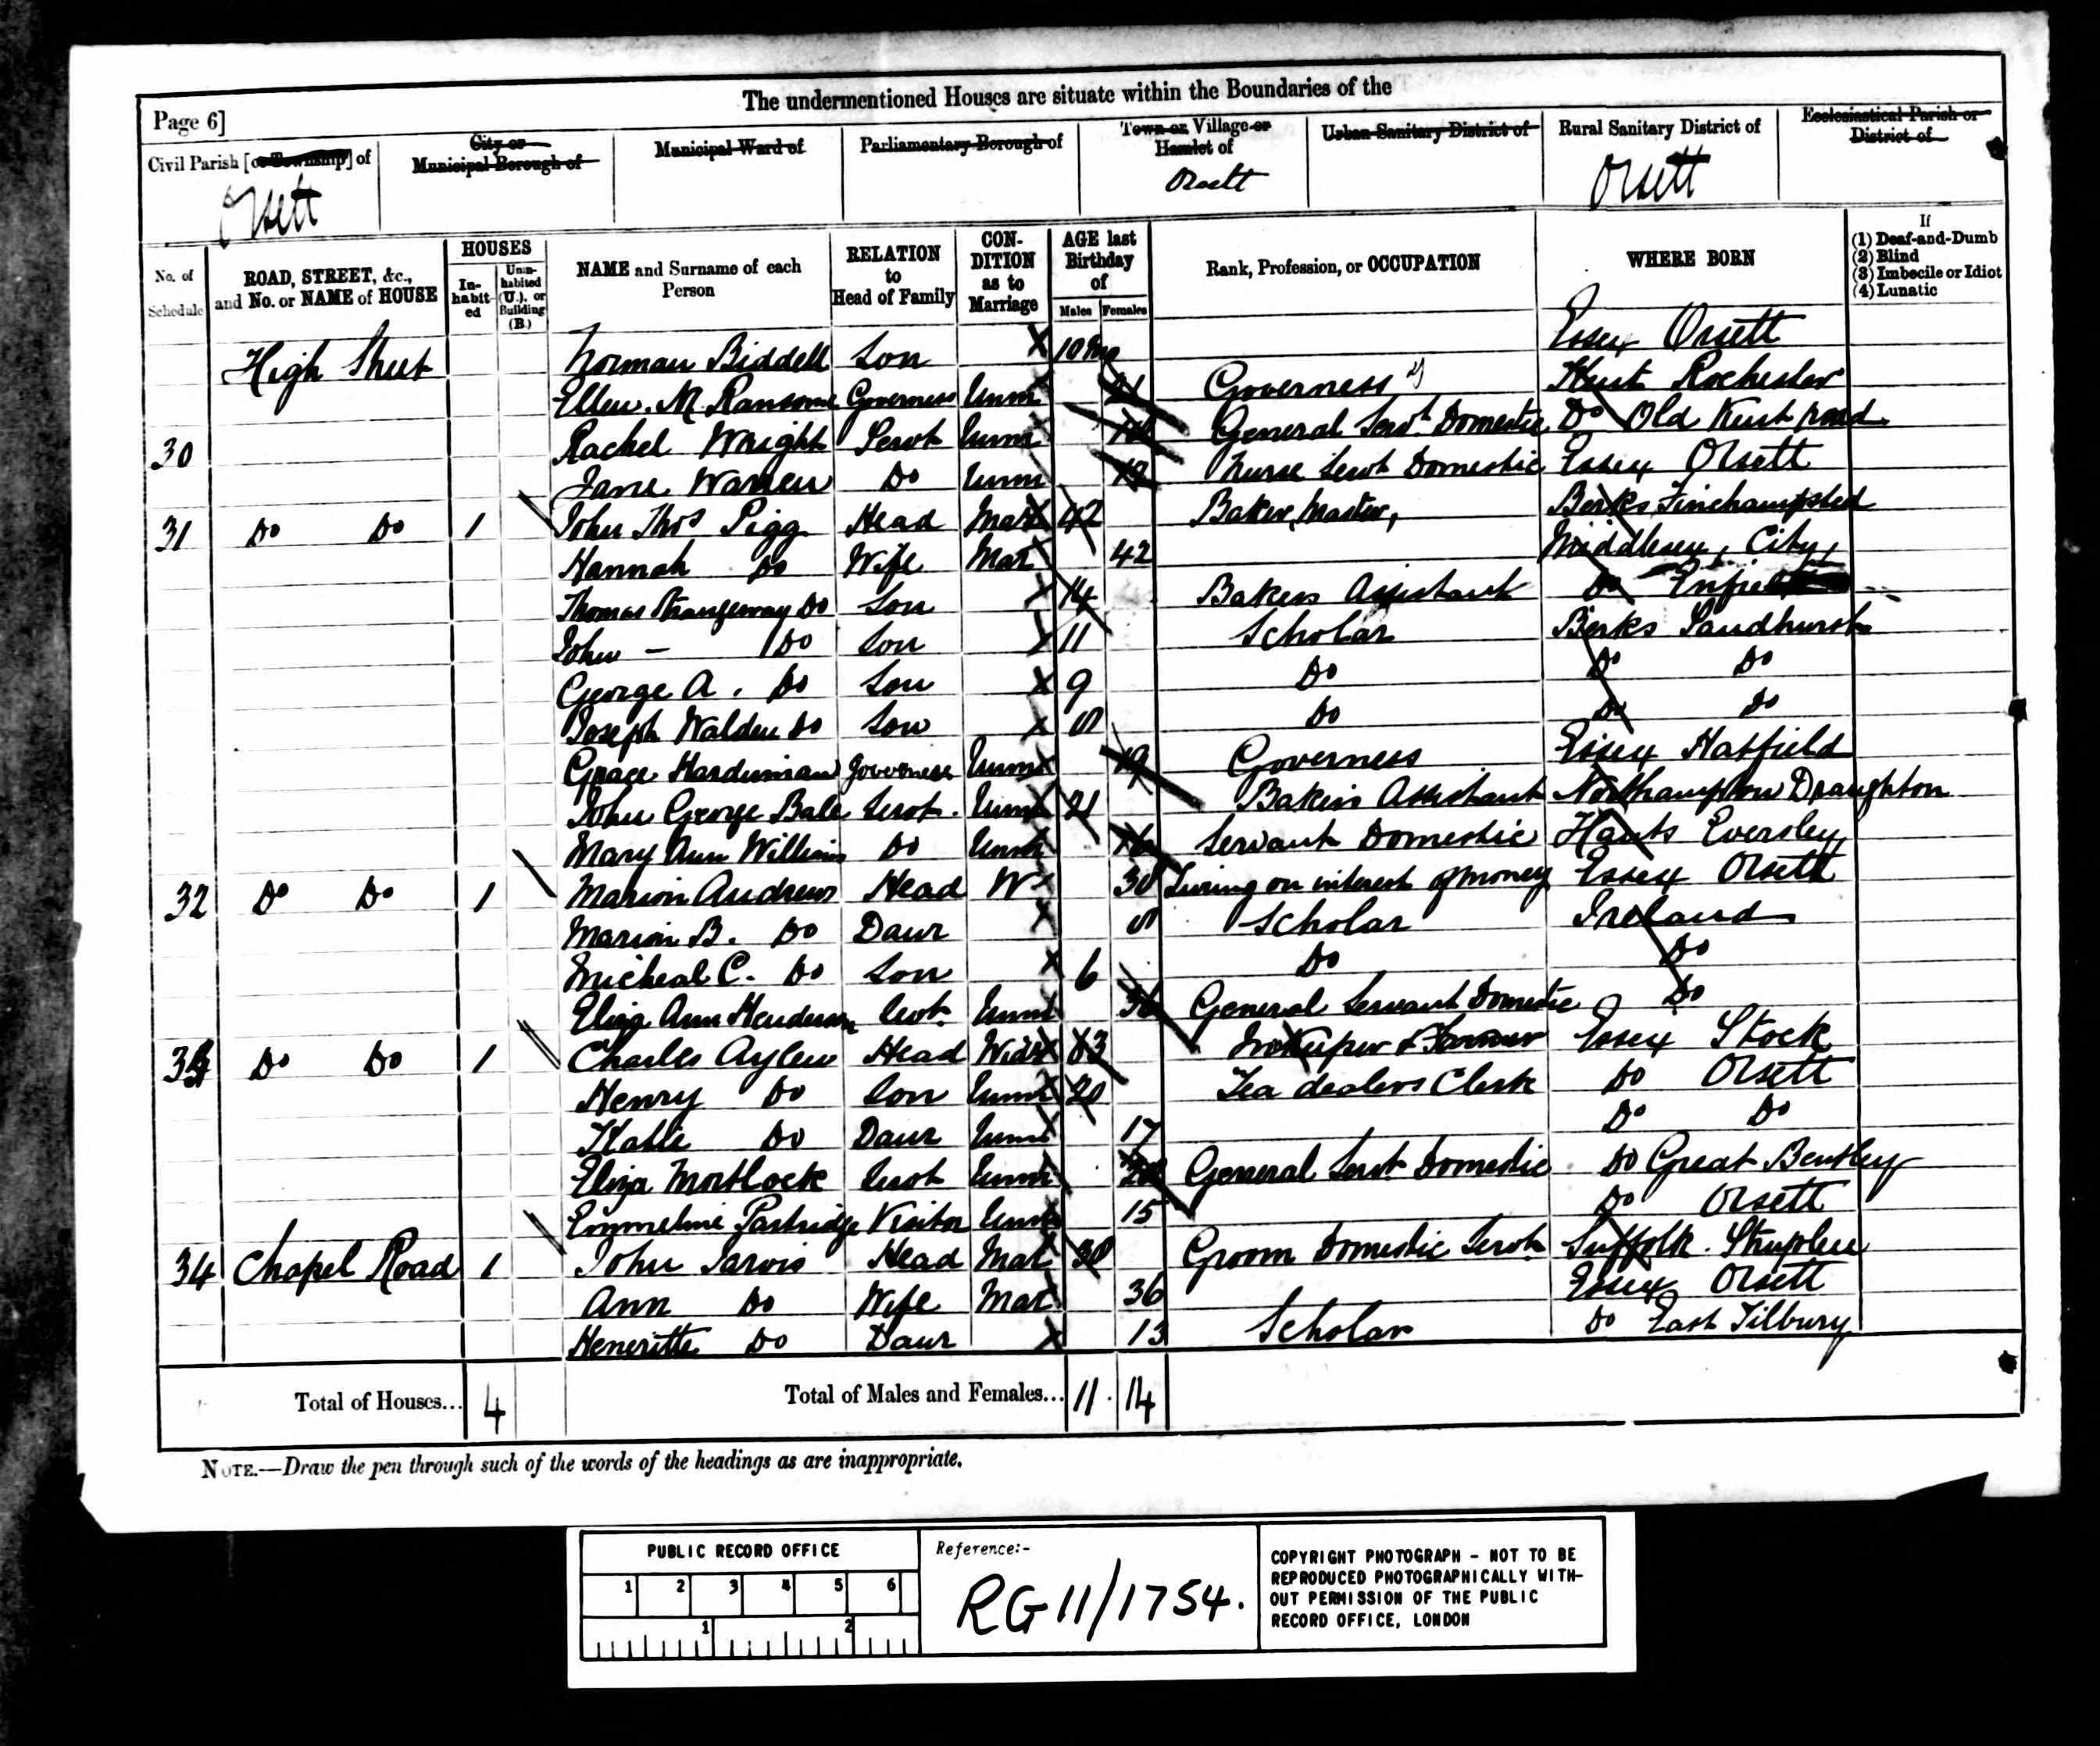 The undermentioned Houses are situate within the Boundaries of the
Page 6]
Civil Parish [or Township] of
City or Municipal Borough of
Municipal Ward of
Parliamentary Borough of
Town or Village or Hamlet of
Urban Sanitary District of
Rural Sanitary District of
Ecclesiastical Parish or District of
Orsett Orsett Orsett
No. of Schedule
ROAD, STREET, &c., and No. or NAME of HOUSE
HOUSES
In-habit-ed
Unin-habited (U.), or Building (B.)
NAME and Surname of each Person
RELATION to Head of Family
CON-DITION as to Marriage
AGE last Birthday of
Males Females
Rank, Profession, or OCCUPATION
WHERE BORN
If
(1) Deaf-and-Dumb
(2) Blind
(3) Imbecile or Idiot
(4) Lunatic
High Street Norman Biddell Son 10 mo Essex Orsett
Ellen. M. Ransome Governess Unm 21 Governess Kent Rochester
30 Rachel Wright Servt Unm General Servt. Domestic Do Old Kent road
Jane Warren Do Unm Nurse Servt Domestic Essex Orsett
31 Do Do 1 John Thos Pigg Head Mar 42 Baker, Master, Berks Finchampsted
Hannah Do Wife Mar 42 Middlesex, City,
Thomas Strangeway Do Son 14 Bakers Assistant Do Enfield
John - Do Son 11 Scholar Berks Sandhurst
George A. Do Son 9 Do Do Do
Joseph Walden Do Son Do Do Do
Grace Harduman Governess Unm 19 Governess Essex Hatfield
John George Bale Servt. Unm 21 Bakers Assistant Northampton Draughton
Mary Ann Williams Do Unm 16 Servant Domestic Hants Eversley
32 Do Do 1 Marion Andrews Head W 30 Living on interest of money Essex Orsett
Marion B. Do Daur Scholar Ireland
Micheal C. Do Son 6 Do Do
Eliza Ann Henderson Servt. Unm General Servant Domestic Do
33 Do Do 1 Charles Aylen Head Widr 63 Innkeeper & Farmer Essex Stock
Henry Do Son Unm 20 Tea dealers Clerk Do Orsett
Katie Do Daur Unm 17 Do Do
Eliza Mortlock Servt Unm General Servt. Domestic Do Great Bentley
Emmeline Partridge Visitor Unm 15 Do Orsett
34 Chapel Road 1 John Jarvis Head Mar 30 Groom Domestic Servt Suffolk.
Ann Do Wife Mar 36 Essex Orsett
Heneritta Do Daur 13 Scholar Do East Tilbury
Total of Houses... 4 Total of Males and Females... 11 14
NOTE.—Draw the pen through such of the words of the headings as are inappropriate.
PUBLIC RECORD OFFICE
1 2 3 4 5 6
1 2
Reference:-
RG 11/1754.
COPYRIGHT PHOTOGRAPH - NOT TO BE
REPRODUCED PHOTOGRAPHICALLY WITH-
OUT PERMISSION OF THE PUBLIC
RECORD OFFICE, LONDON